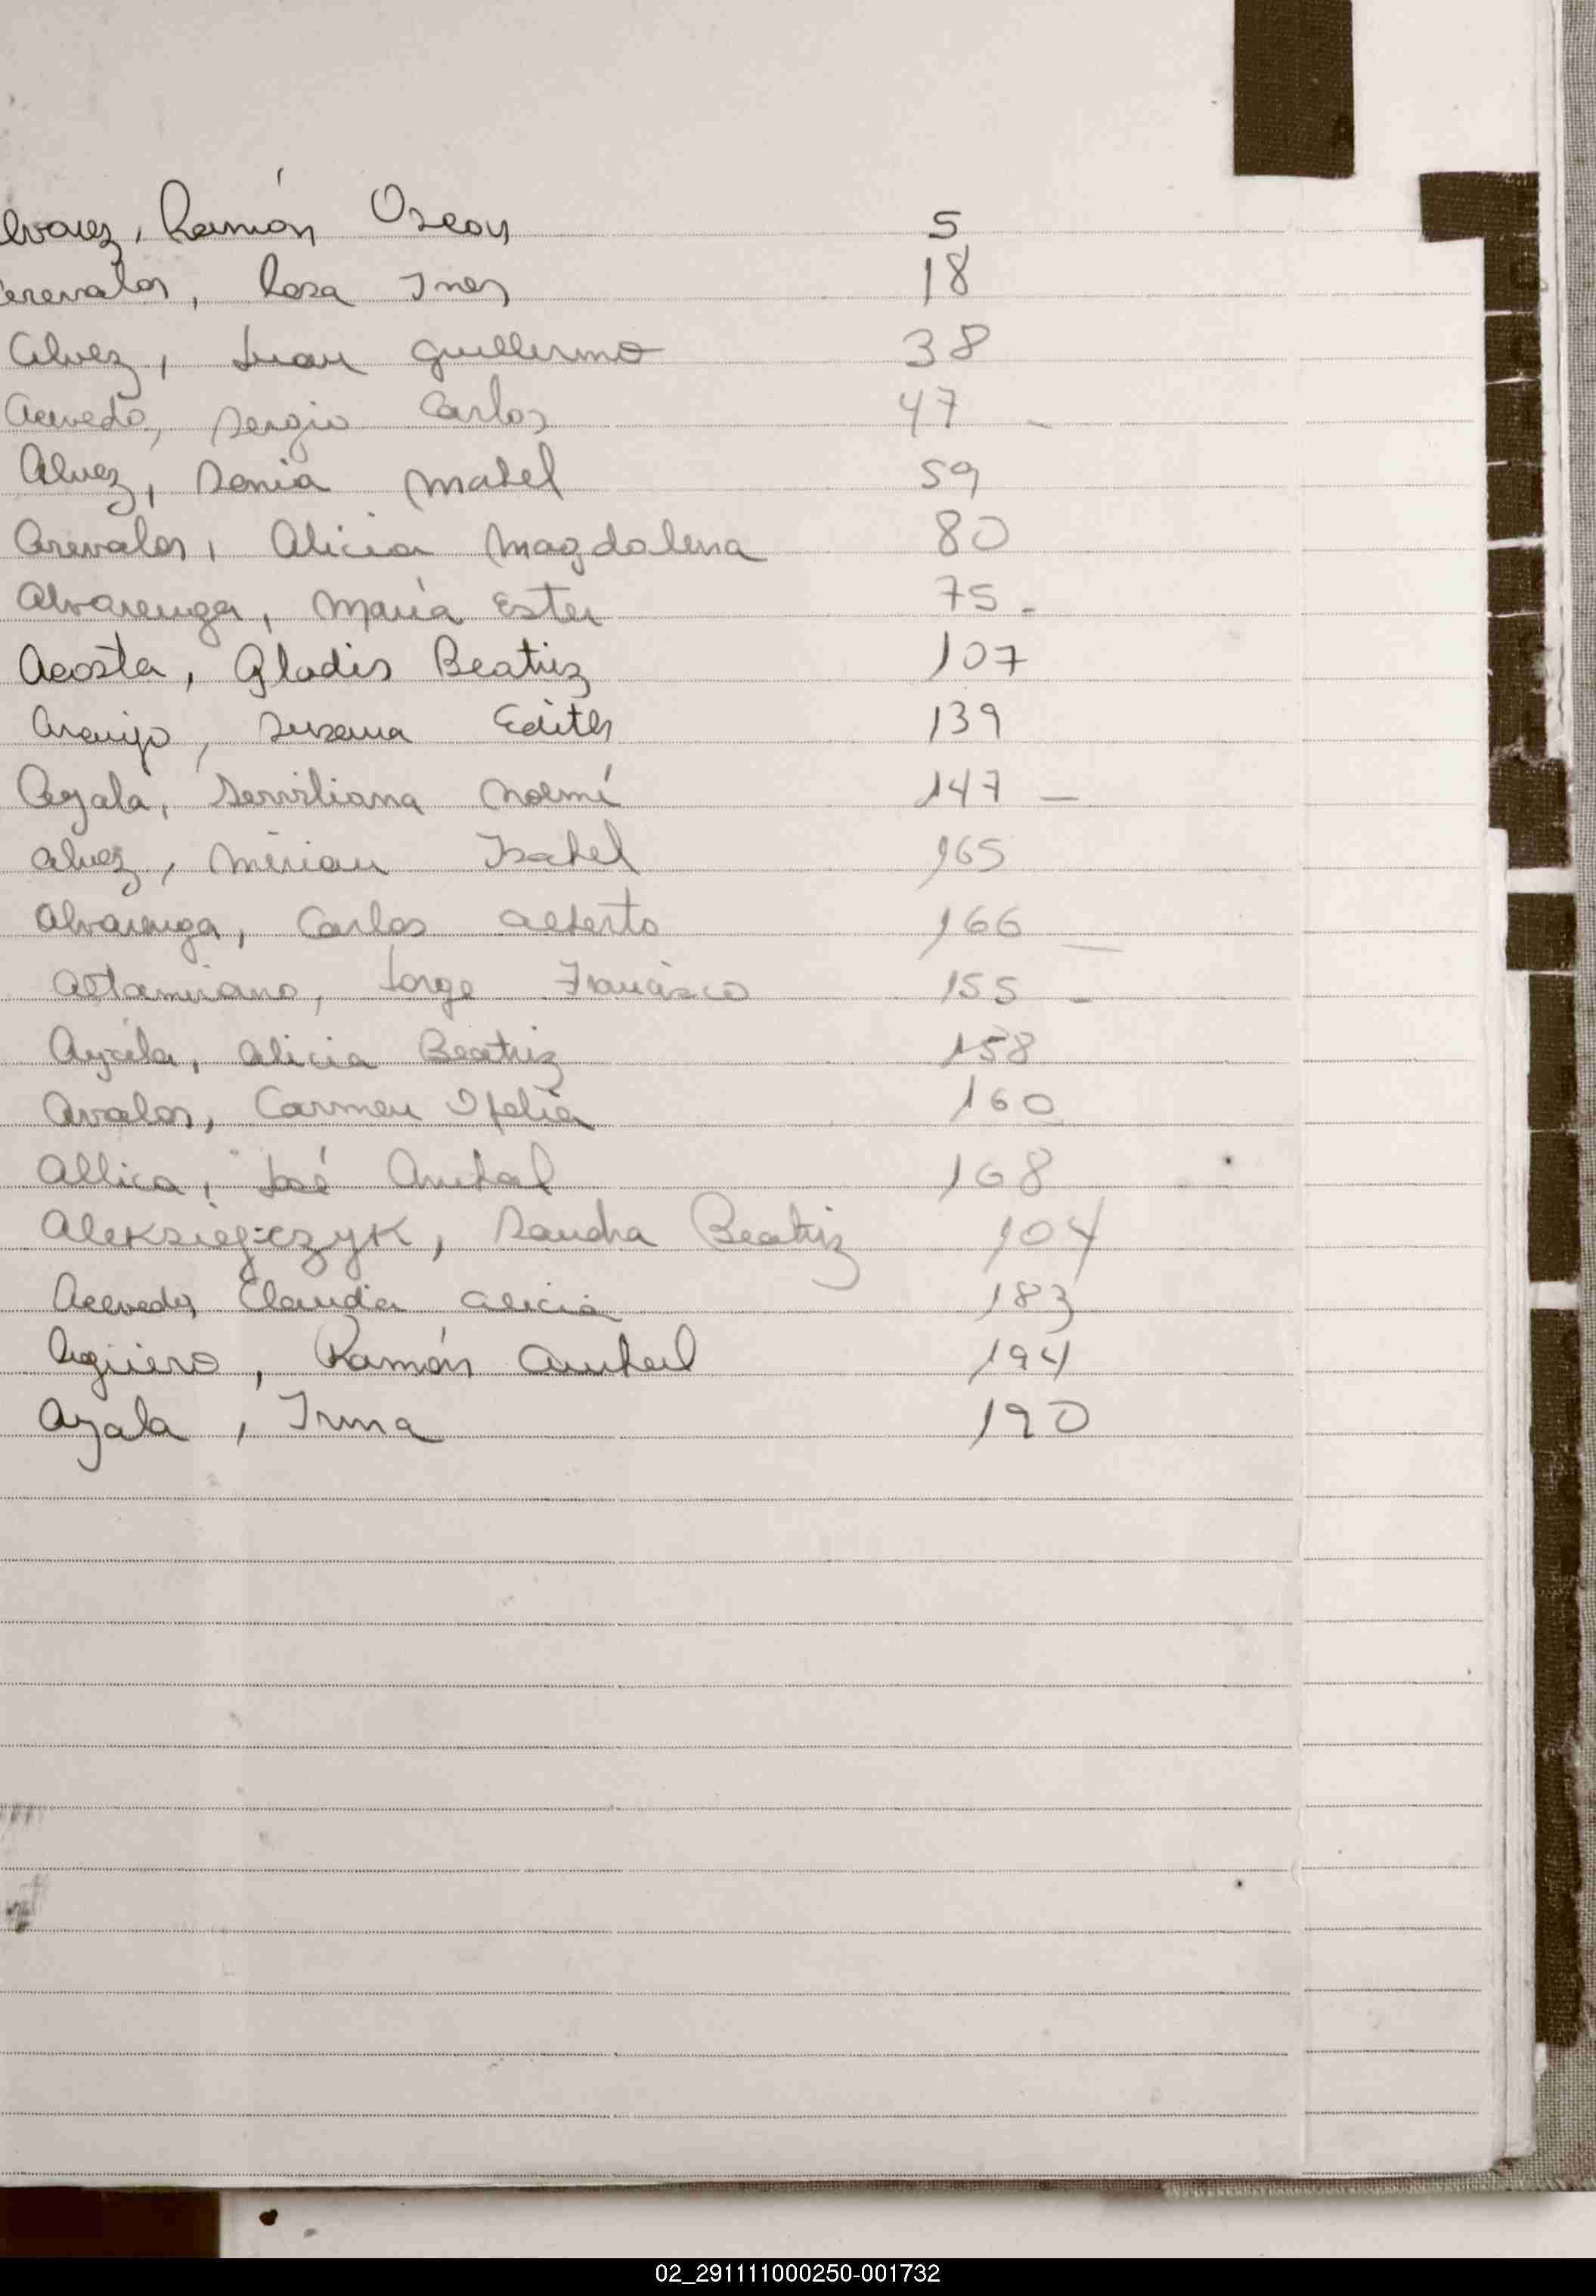 lvarez, Ramón Oscar 5
Arevalos, Rosa Ines 18
Alvez, Juan Guillermo 38
Acevedo, Sergio Carlos 47 -
Alvez, Sonia Mabel 59
Arevalos, Alicia Magdalena 80
Alvarenga, María Ester 75.
Acosta, Gladis Beatriz 107
Araujo, Susana Edith 139
Ayala, Serviliana Noemí 147 -
Alvez, Mirian Isabel 165
Alvarenga, Carlos Alberto 166 -
Altamirano, Jorge Francisco 155 -
Ayala, Alicia Beatriz 158
Avalos, Carmen Ofelia 160
Allica, José Anibal 168
Aleksiejczyk, Sandra Beatriz 104
Acevedo, Claudia Alicia 183
Agüero, Ramón Anibal 194
Ayala, Irma 190
02_291111000250-001732